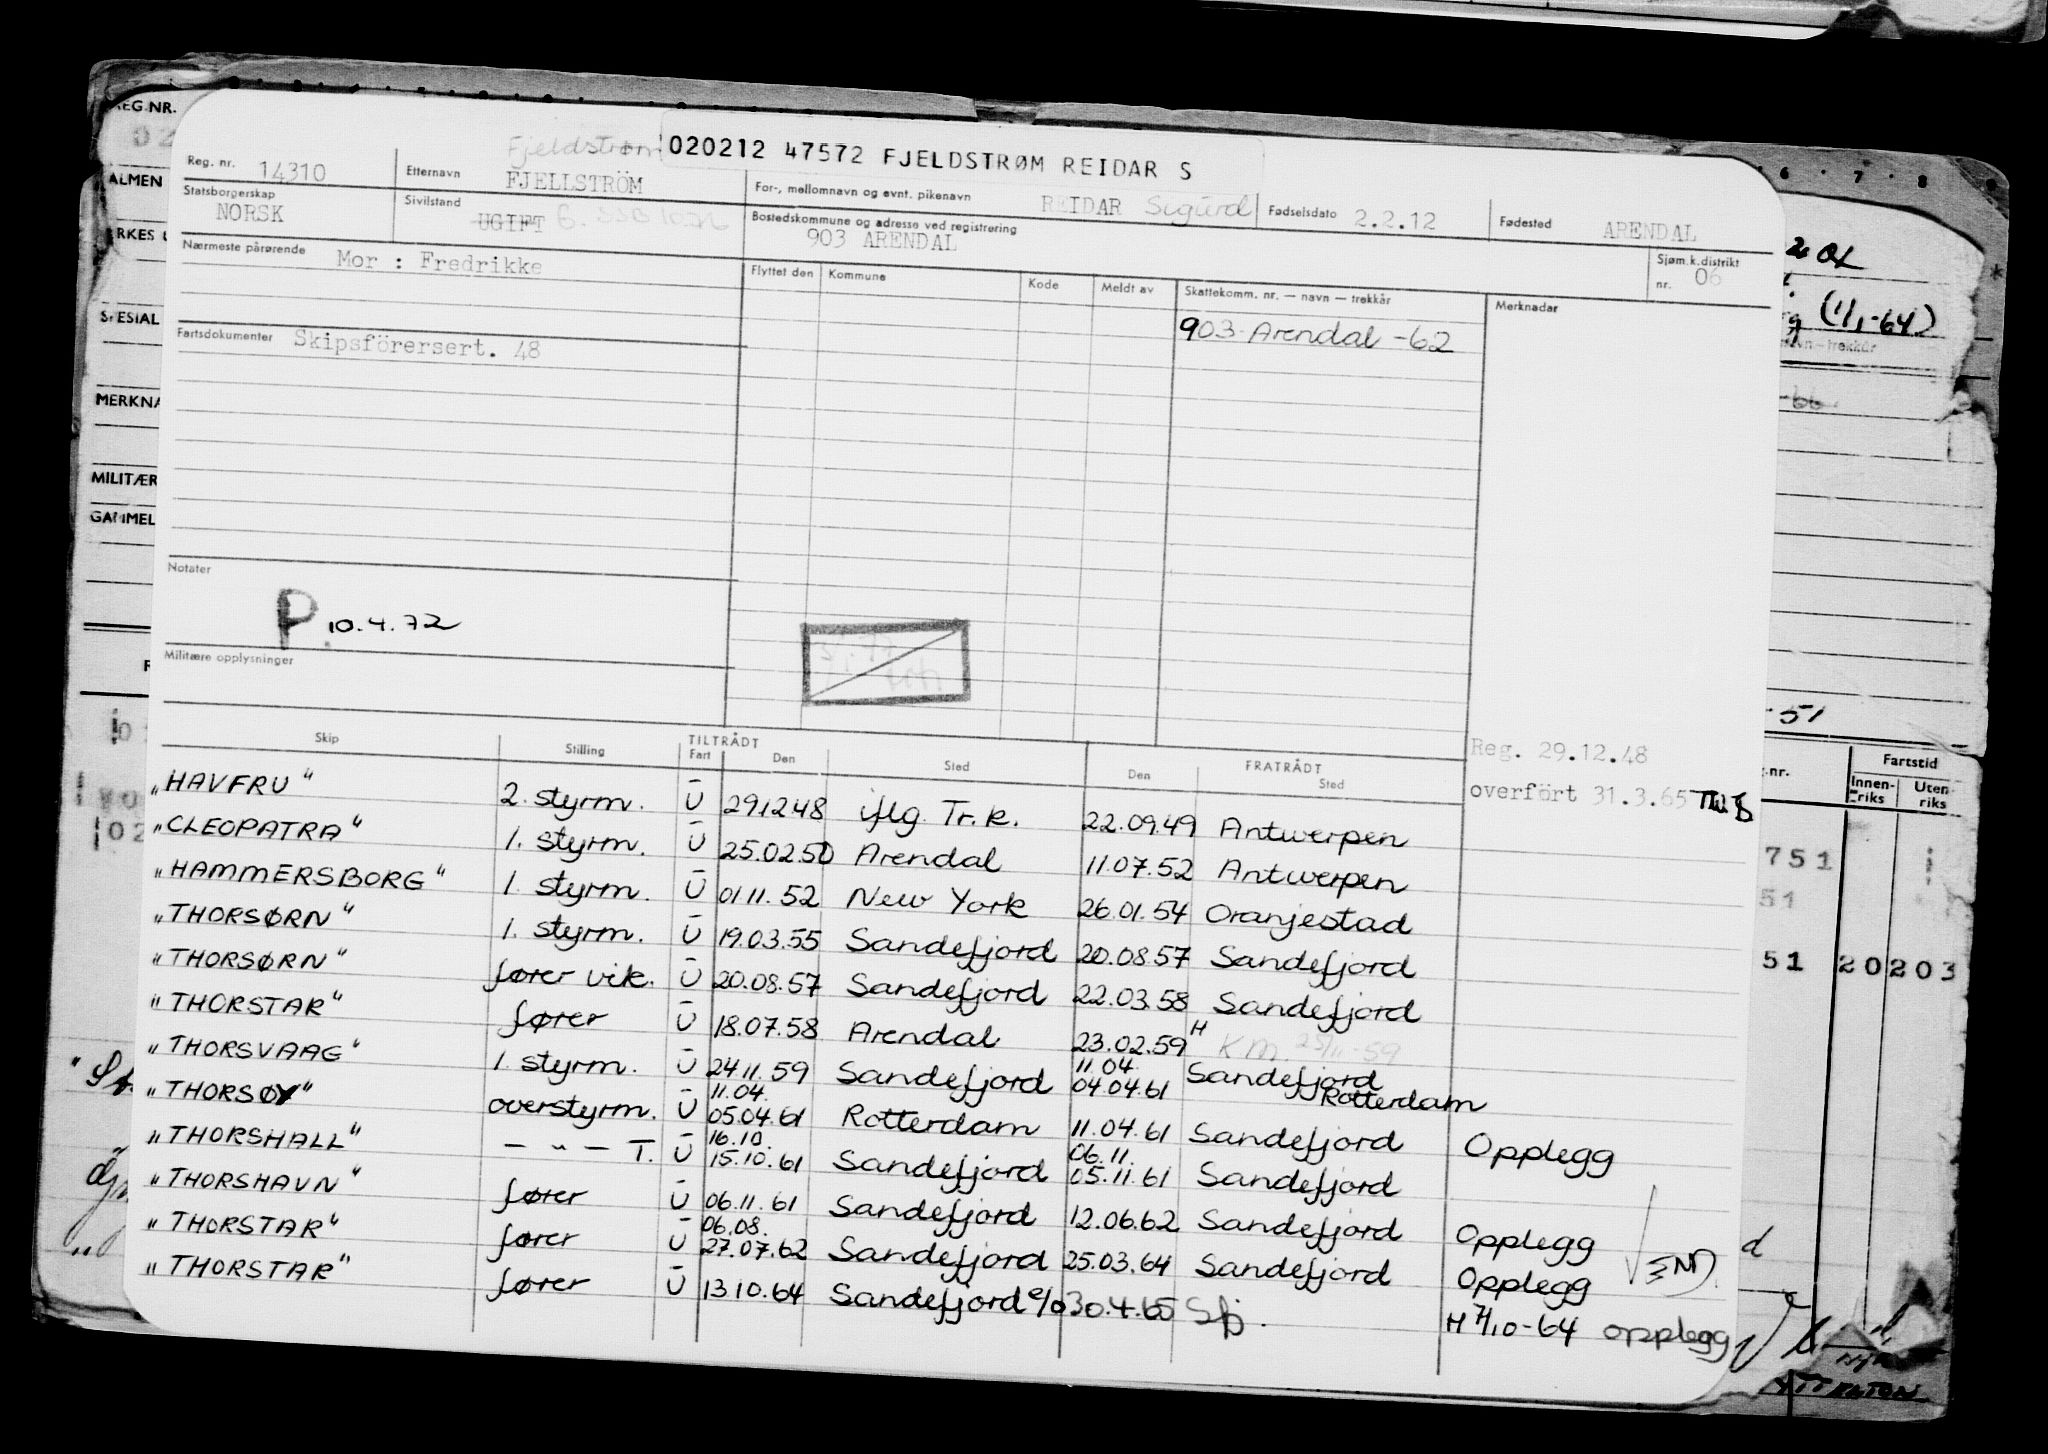 020212 47572 FJELDSTRØM REIDAR S
Reg. nr. 14310 Etternavn Fjeldstrøm FJELLSTRÖM For-, mellomnavn og evnt. pikenavn REIDAR Sigurd Fødselsdato 2.2.12 Fødested ARENDAL
Statsborgerskap NORSK Sivilstand UGIFT Bostedskommune og adresse ved registrering 903 ARENDAL Sjøm.k.distrikt nr. 06
Nærmeste pårørende Mor : Fredrikke
Flyttet den Kommune Kode Meldt av Skattekomm. nr. — navn — trekkår Merknadar
903 Arendal -62
Fartsdokumenter Skipsförersert. 48
Notater
P. 10.4.72
Militære opplysninger
Reg. 29.12.48
overfört 31.3.65
Skip Stilling TILTRÅDT Fart Den Sted FRATRÅDT Den Sted
"HAVFRU" 2. styrm. U 29.12.48 iflg. Tr.k. 22.09.49 Antwerpen
"CLEOPATRA" 1. styrm. U 25.02.50 Arendal 11.07.52 Antwerpen
"HAMMERSBORG" 1. styrm. U 01.11.52 New York 26.01.54 Oranjestad
"THORSØRN" 1. styrm. U 19.03.55 Sandefjord 20.08.57 Sandefjord
"THORSØRN" fører vik. U 20.08.57 Sandefjord 22.03.58 Sandefjord
"THORSTAR" fører U 18.07.58 Arendal 23.02.59 H
"THORSVAAG" 1. styrm. U 24.11.59 Sandefjord 11.04. 04.04.61 Sandefjord Rotterdam
"THORSØY" overstyrm. U 11.04. 05.04.61 Rotterdam 11.04.61 Sandefjord Opplegg
"THORSHALL" — " — T. U 16.10. 15.10.61 Sandefjord 06.11. 05.11.61 Sandefjord
"THORSHAVN" fører U 06.11.61 Sandefjord 12.06.62 Sandefjord Opplegg
"THORSTAR" fører U 06.08. 27.07.62 Sandefjord 25.03.64 Sandefjord Opplegg
"THORSTAR" fører U 13.10.64 Sandefjord e/o 30.4.65 Sfj. H 7/10-64 opplegg
REG. NR.
02
ALMEN
SPESIAL
MERKNA
MILITÆR
GAMMEL
6 . 7 . 8
(1/1-64)
trekkår
-66
-51
nr. Fartstid
Innenriks Utenriks
751
51
51 20203